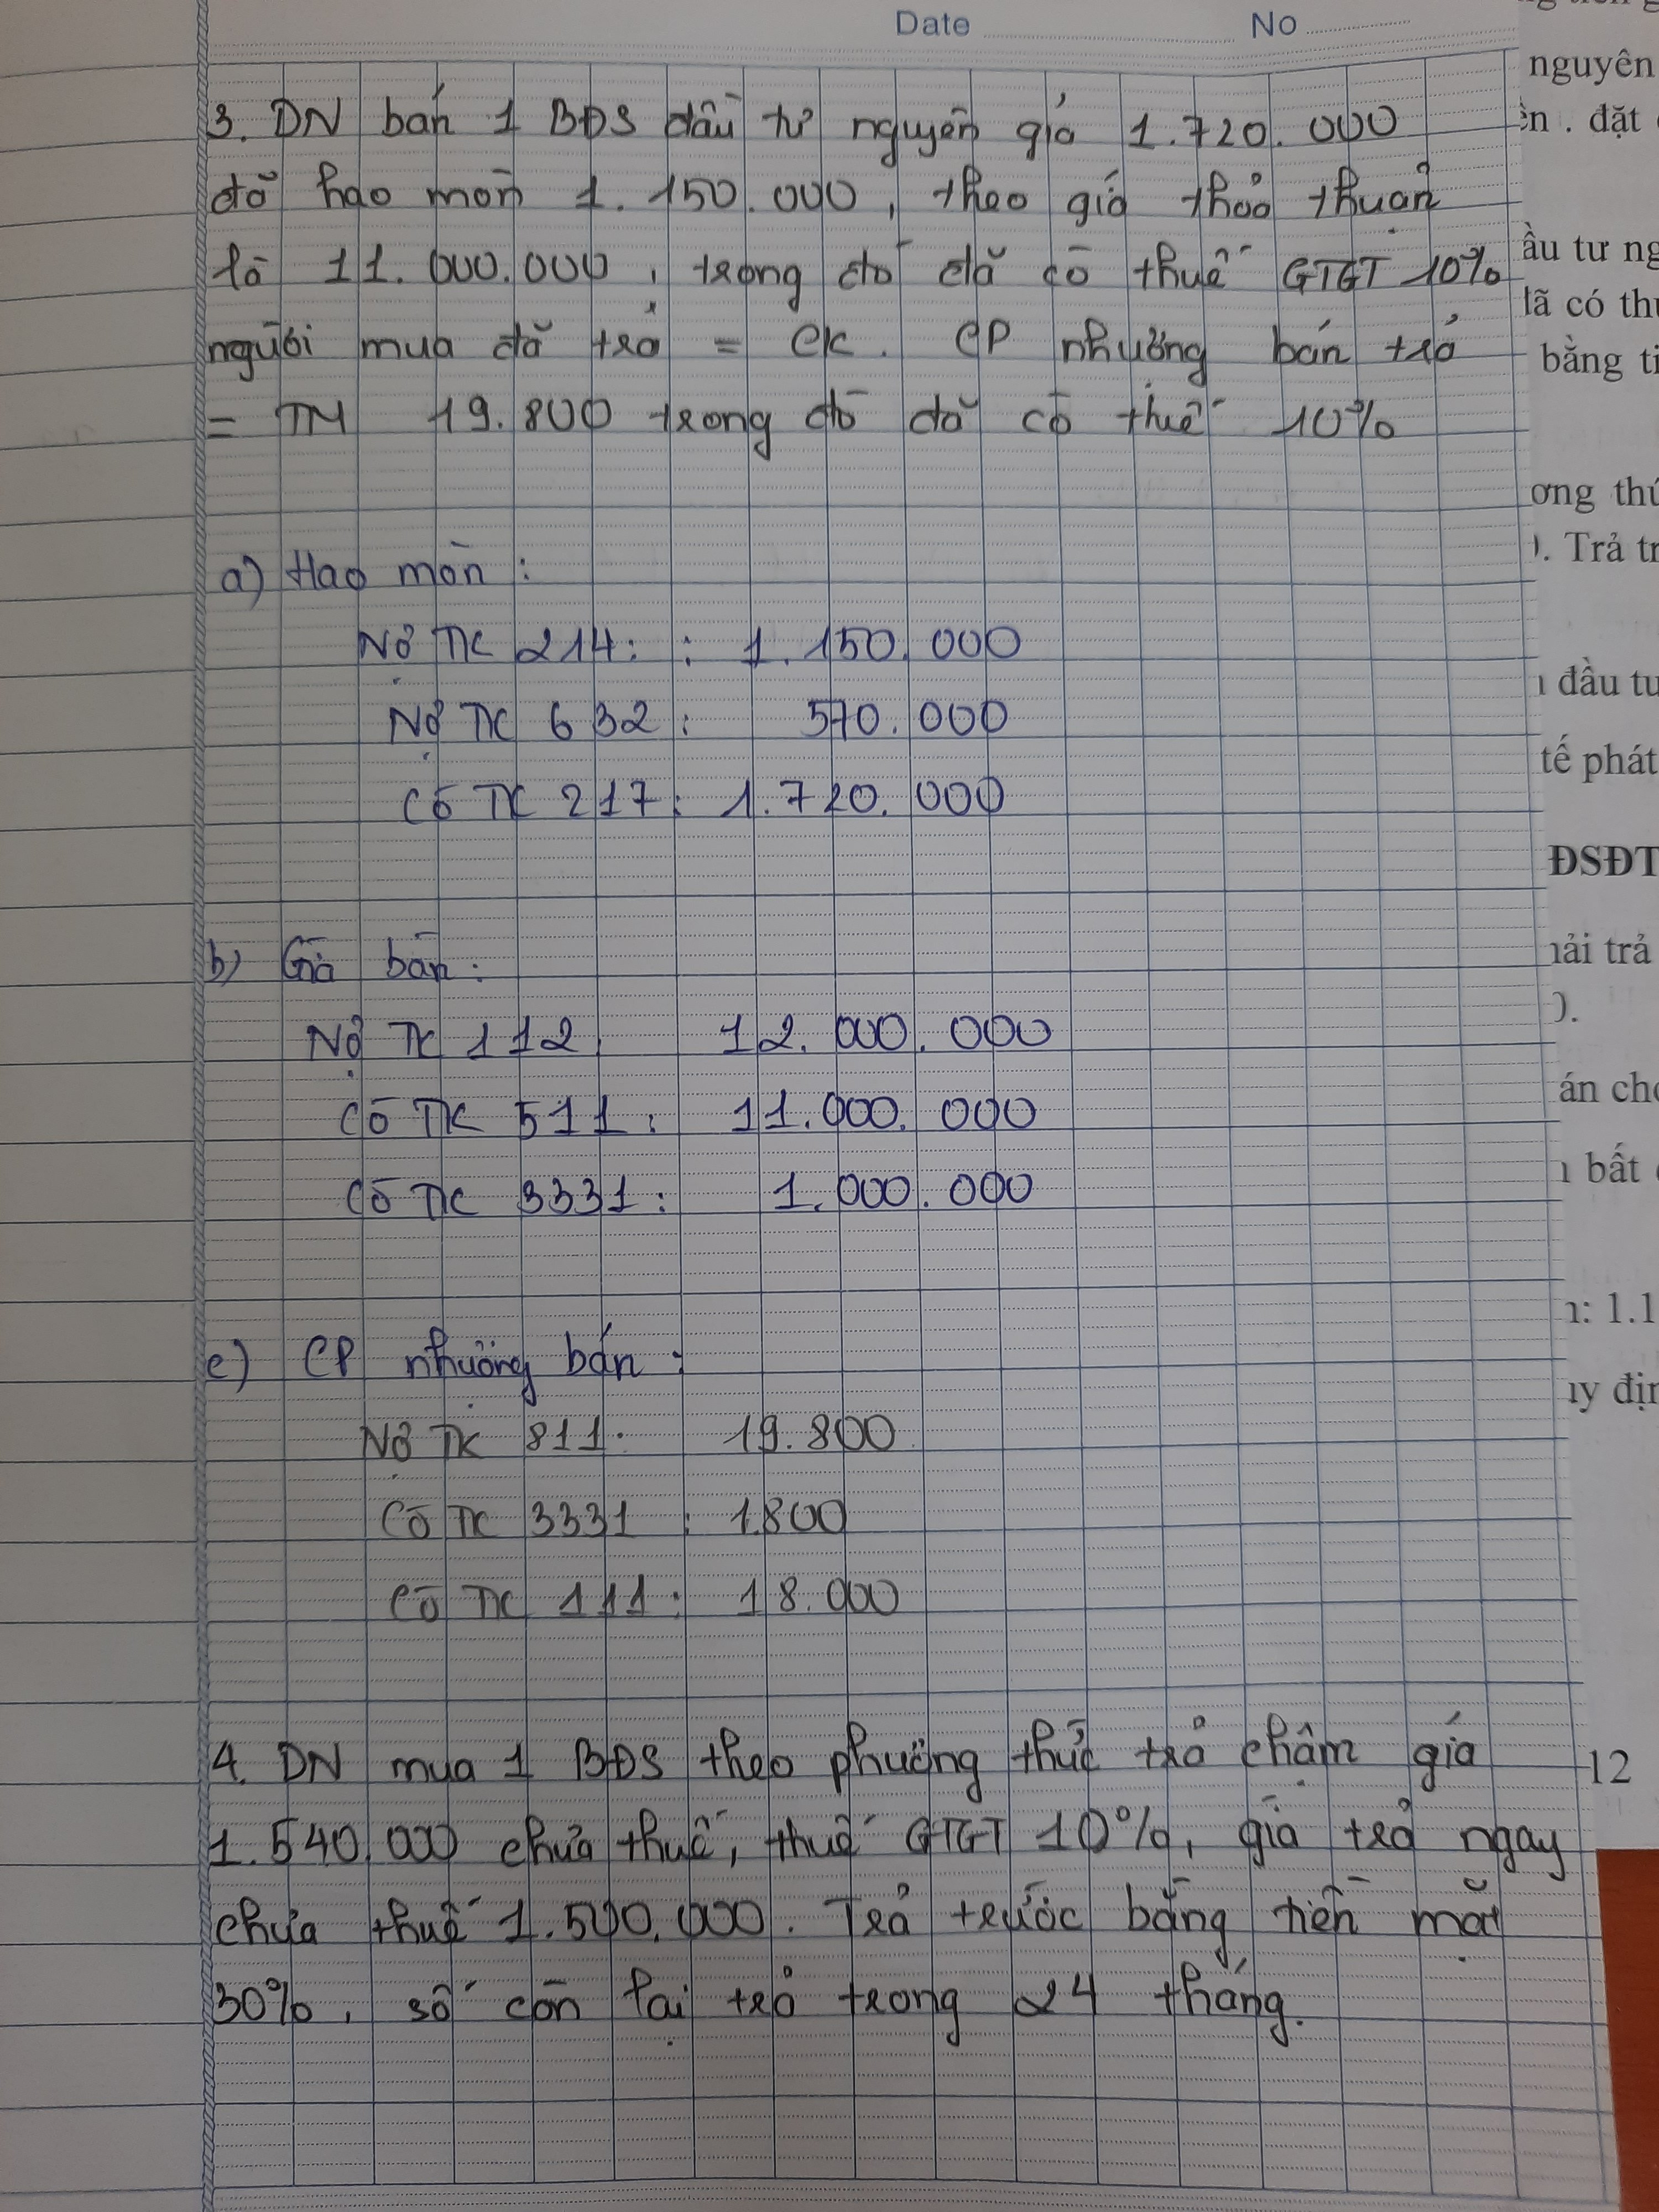 Date No
3. DN bán 1 BĐS đầu tư nguyên giá 1.720.000
đã hao mòn 1.150.000, theo giá thoả thuận
là 11.000.000, trong đó đã có thuế GTGT 10%
người mua đã trả = CK. CP nhượng bán trả
= TM 19.800 trong đó đã có thuế 10%
a) Hao mòn:
Nợ TK 214: : 1.150.000
Nợ TK 632: 570.000
Có TK 217: 1.720.000
b) Giá bán:
Nợ TK 112 12.000.000
Có TK 511: 11.000.000
Có TK 3331: 1.000.000
c) CP nhượng bán:
Nợ TK 811: 19.800
Có TK 3331: 1.800
Có TK 111: 18.000
4. DN mua 1 BĐS theo phương thức trả chậm giá
1.540.000 chưa thuế, thuế GTGT 10%, giá trả ngay
chưa thuế 1.500.000. Trả trước bằng tiền mặt
30%, số còn lại trả trong 24 tháng.
nguyên
. đặt
ầu tư
có
bằng
. Trả
đầu
tế phát
ĐSĐT
ải trả
).
án
bất
: 1.1
12